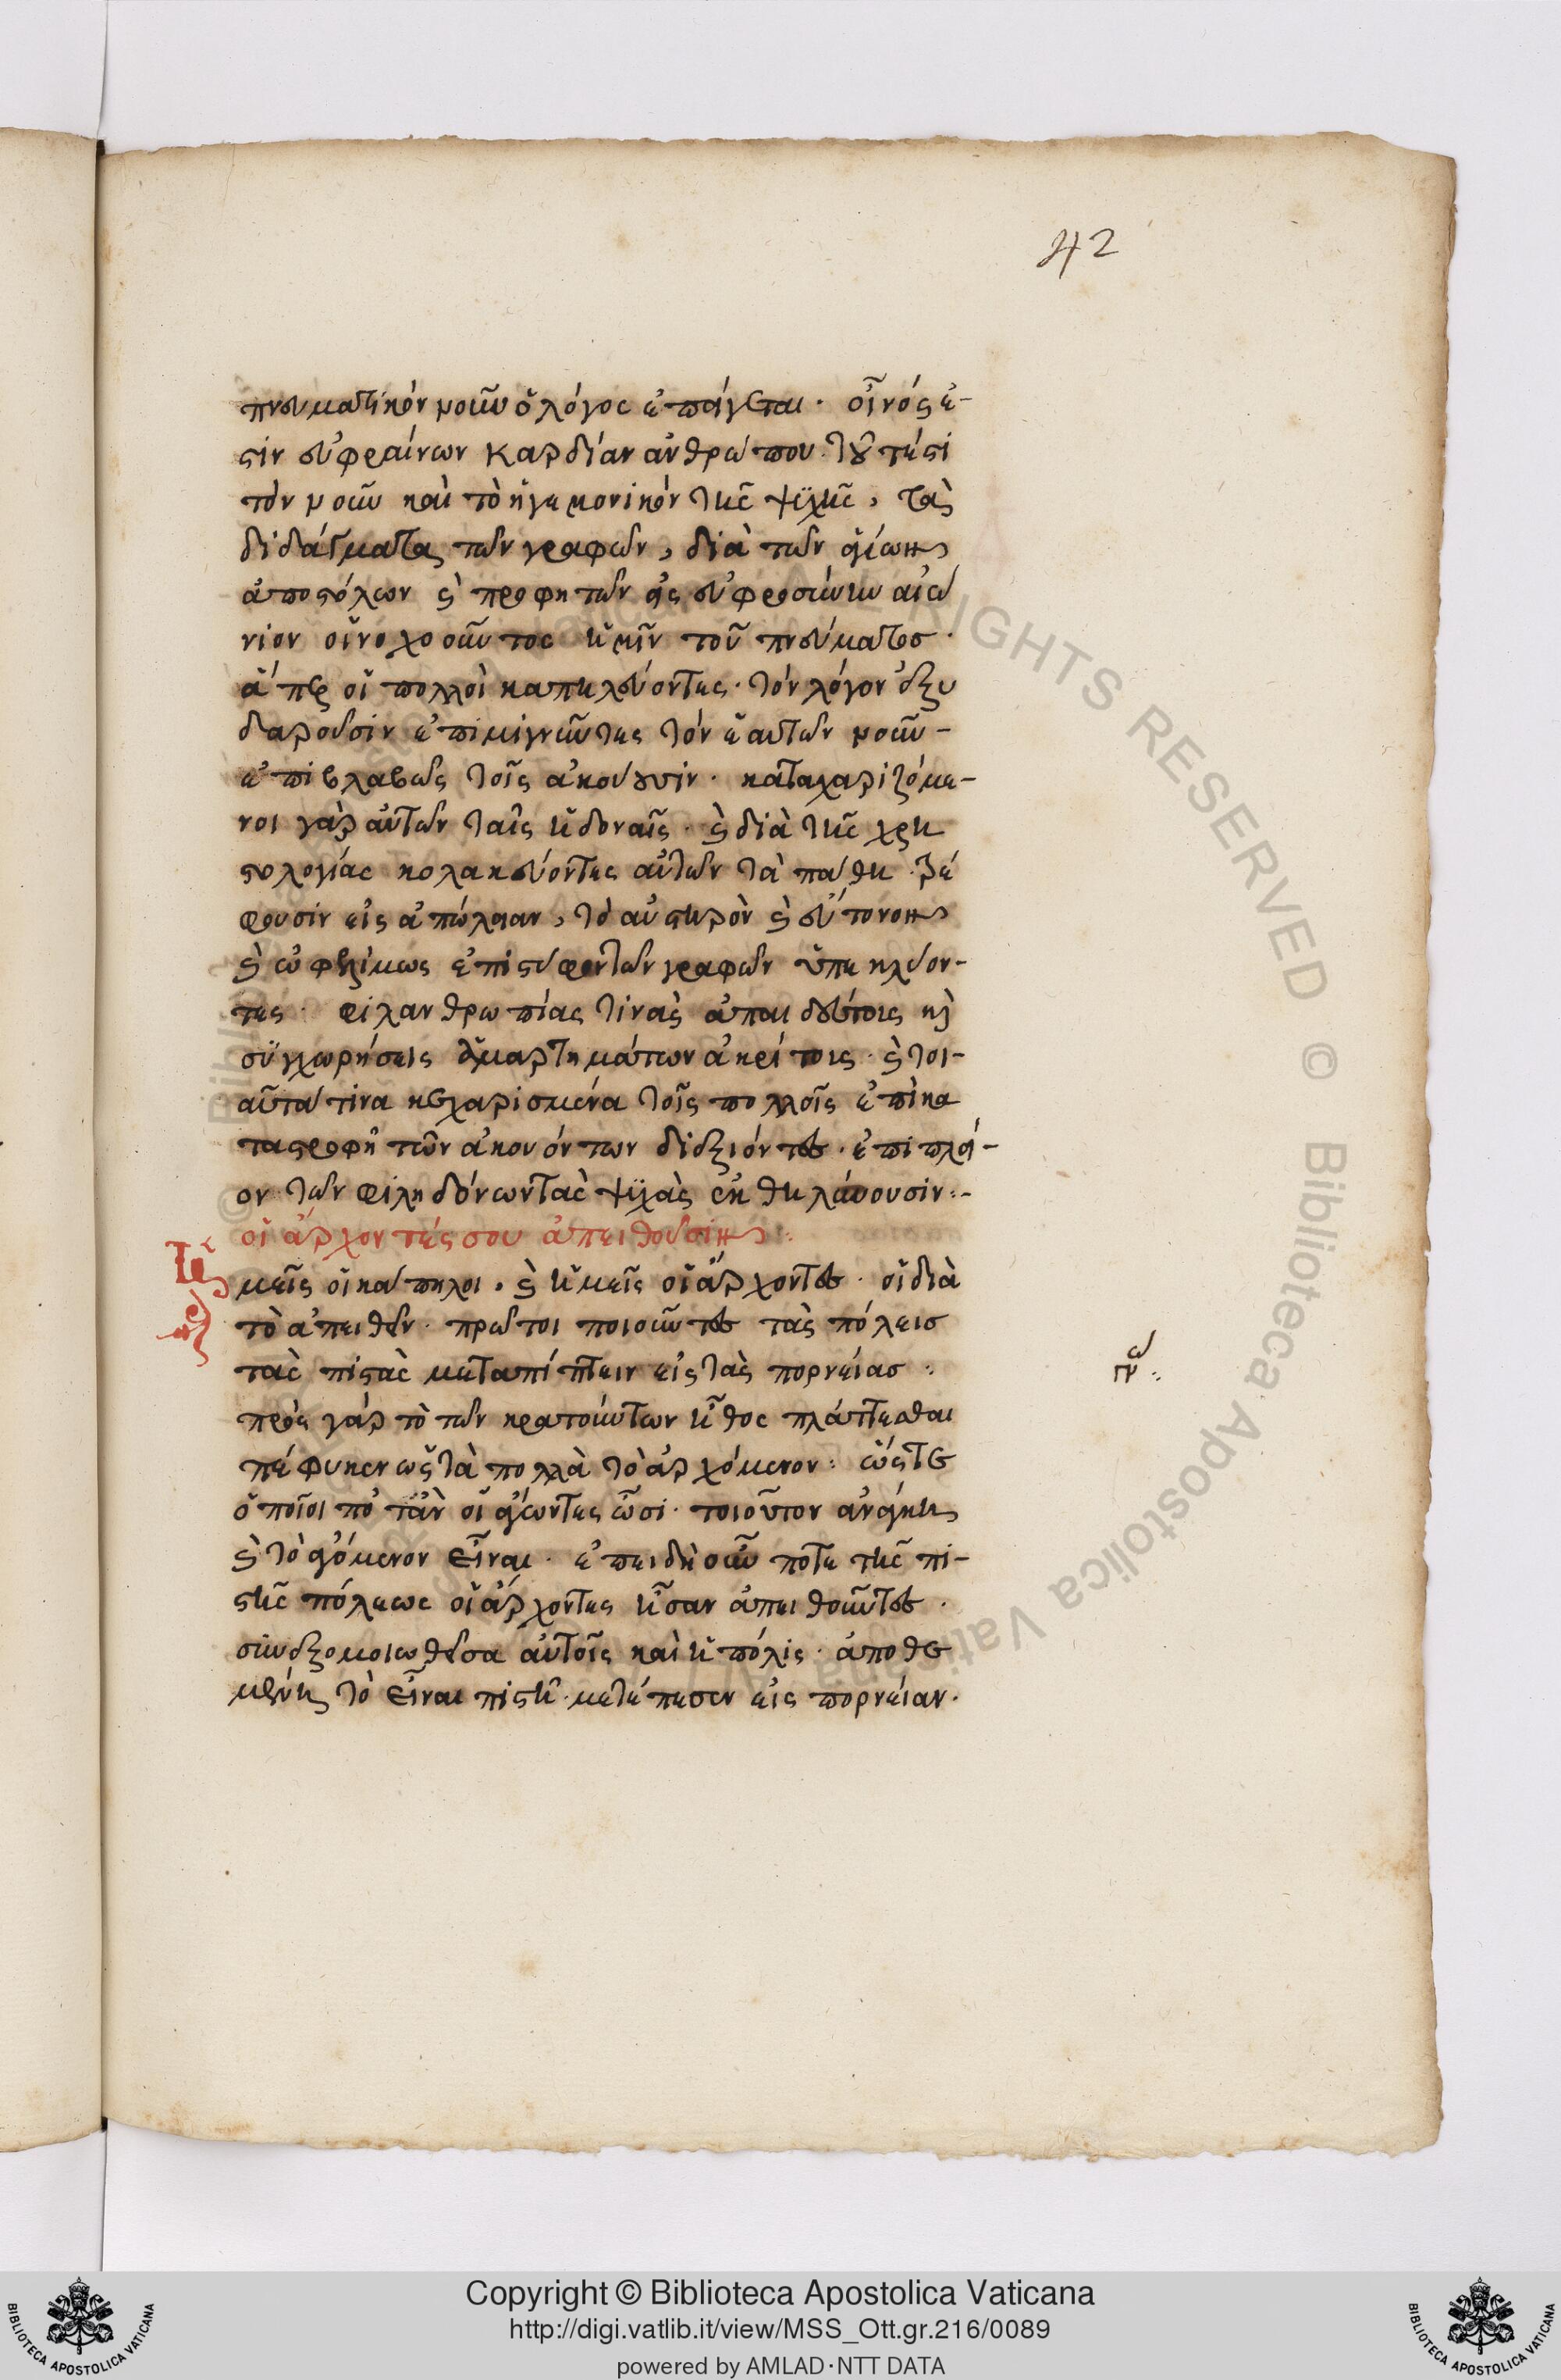 42
πνευματικὸν νοῦν ὁ λόγος ἐπάγεται· οἶνός ἐ-
στιν εὐφραίνων καρδίαν ἀνθρώπου· τουτέστι
τὸν νοῦν καὶ τὸ ἡγεμονικὸν τῆς ψυχῆς, τὰς
διδάγματα τῶν γραφῶν, διὰ τῶν ἁγίων
ἀποστόλων καὶ προφητῶν εἰς εὐφροσύνην αἰώ
νιον οἰνοχοοῦντος ἡμῖν τοῦ πνεύματος·
ἅπερ οἱ πολλοὶ καπηλεύοντες· τὸν λόγον ὀξυ
δαροῦσιν ἐπιμιγνῦντες τὸν ἑαυτῶν νοῦν-
ἐπιβλαβῶς τοῖς ἀκούουσιν· καταχαριζόμε-
νοι γὰρ αὐτῶν ταῖς ἡδοναῖς· καὶ διὰ τῆς χρη
στολογίας κολακεύοντες αὐτῶν τὰ πάθη· τρέ
φουσιν εἰς ἀπώλειαν, τὸ αὐστηρὸν καὶ εὔτονον
καὶ ὠφελίμως ἐπιστύφον τῶν γραφῶν ὑπεκλύον-
τες· φιλανθρωπίας τινὰς ἀπαιδεύτοις καὶ
συγχωρήσεις ἁμαρτημάτων ἀκρίτοις· καὶ τοι-
αῦτά τινα κεχαρισμένα τοῖς πολλοῖς ἐπὶ κα
ταστροφῇ τῶν ἀκουόντων διεξιόντες· ἐπιπλεῖ-
ον τῶν φιληδόνων τὰς ψυχὰς ἐκθηλύνουσιν:-
οἱ ἄρχοντές σου ἀπειθοῦσιν:
μεῖς οἱ κάπηλοι· καὶ ἡμεῖς οἱ ἄρχοντες· οἱ διὰ
τὸ ἀπειθεῖν· πρῶτοι ποιοῦντες τὰς πόλεις
τὰς πιστὰς μεταπίπτειν εἰς τὰς πορνείας:
πρὸς γὰρ τὸ τῶν κρατούντων ἦθος πλάττεσθαι
πέφυκεν ὡς τὰ πολλὰ τὸ ἀρχόμενον: ὥστε
ὁποῖοι πότ' ἂν οἱ ἄγοντες ὦσι· τοιοῦτον ἀνάγκη
καὶ τὸ ἀγόμενον εἶναι· ἐπειδὴ οὖν ποτε τῆς πι-
στῆς πόλεως οἱ ἄρχοντες ἦσαν ἀπειθοῦντες·
συνεξομοιωθεῖσα αὐτοῖς καὶ ἡ πόλις· ἀποθε
μένη τὸ εἶναι πιστὴ· μετέπεσεν εἰς πορνείαν·
Copyright © Biblioteca Apostolica Vaticana
http://digi.vatlib.it/view/MSS_Ott.gr.216/0089
powered by AMLAD·NTT DATA